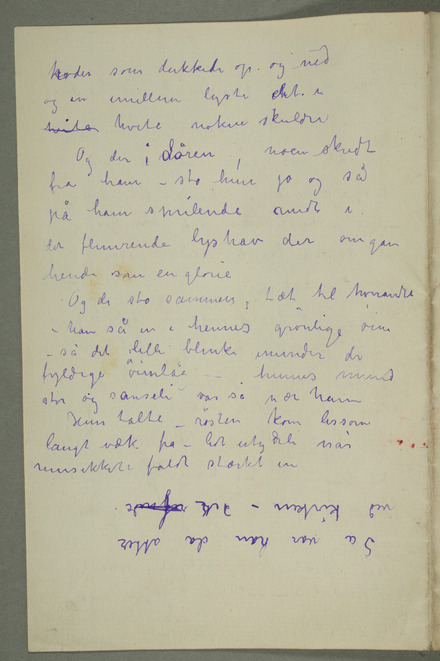 hoder som dukkede op. og ned
og en imellem lyste det i
hvite hvite nakne skuldre
Og der i Dören, noen skridt
fra ham – sto hun jo og så
på ham smilende midt i
et flimrende lyshav der omgav
hende som en glorie
Og de sto sammen, tæt til hverandre
– han så in i hennes grönlige öine
– så det lille blinke under de
fyldige öinlåg – hennes mund
stor og sanseli var så nær ham
Hun talte – rösten kom lissom
langt væk fra – lot utydeli når
musikken faldt stærkt in
Så var han da atter
ved kirken –